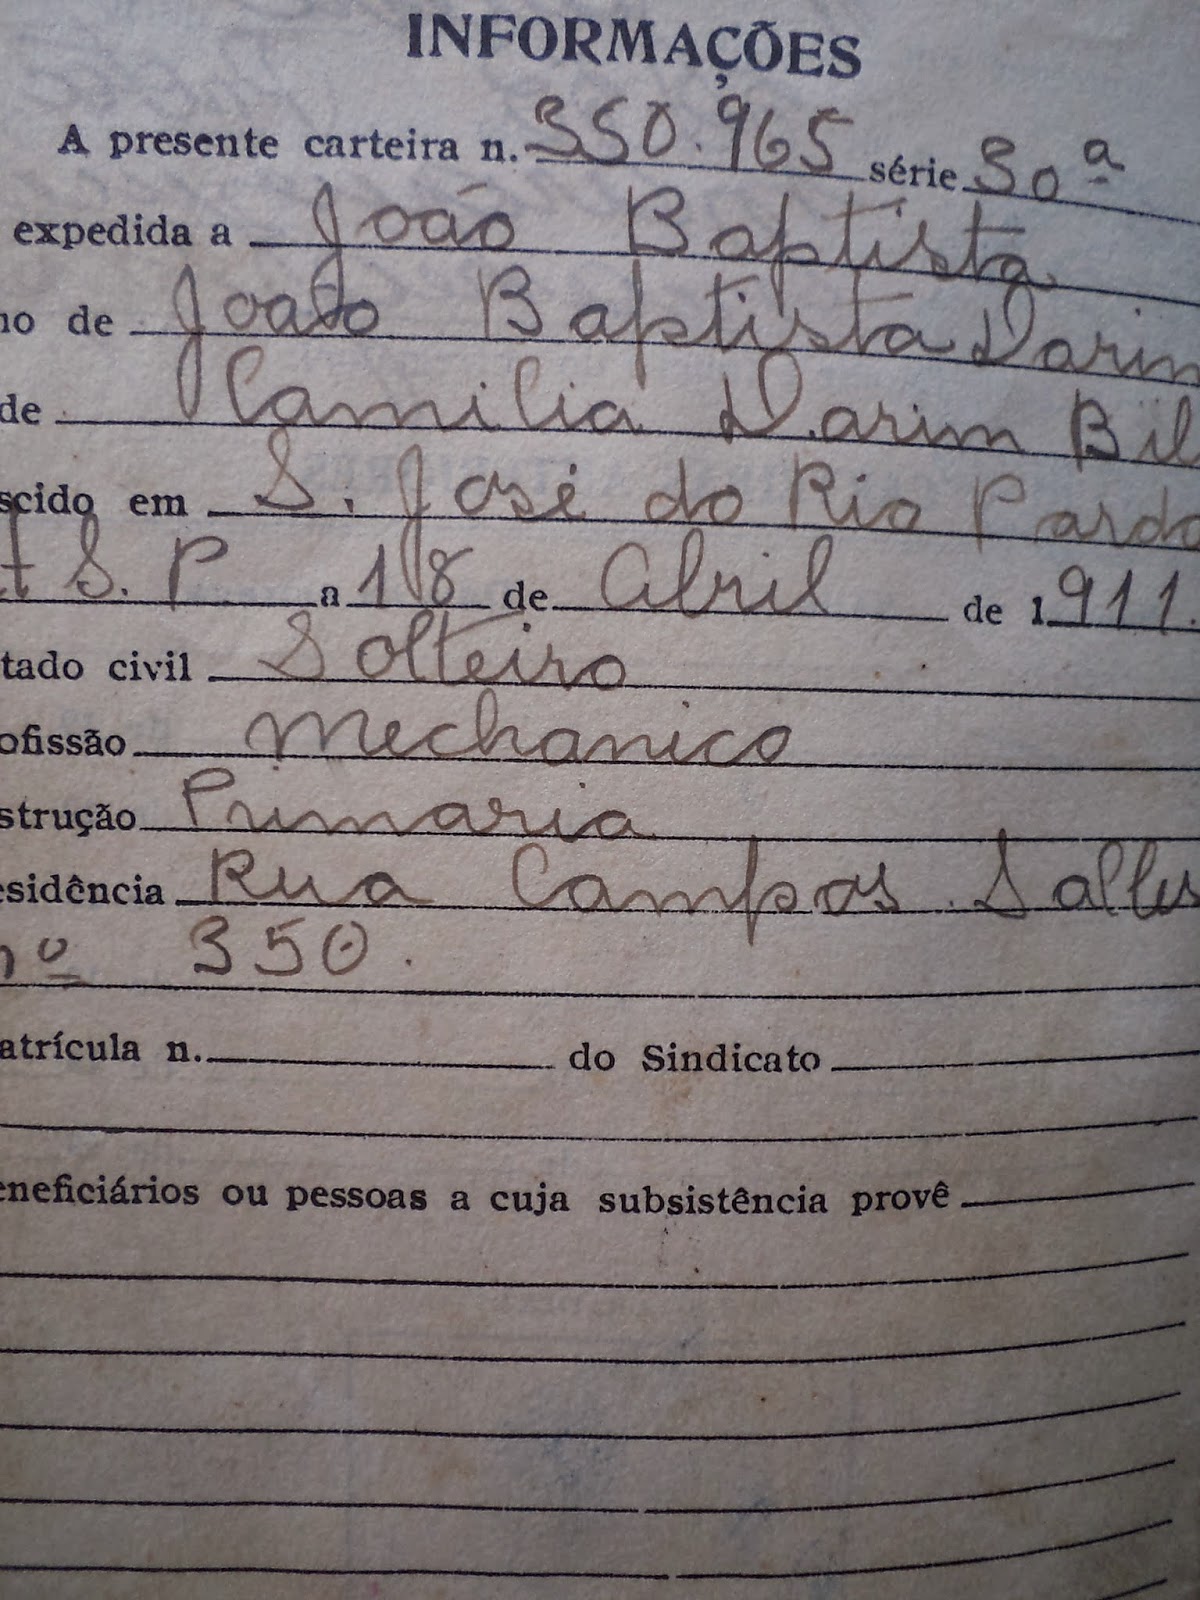 INFORMAÇÕES
A presente carteira n. 350.965 série 30ª
expedida a João Baptista
no de João Baptista Darim
de Camilia Darim Bil
scido em S. José do Rio Pardo
t S. P. a 18 de Abril de 1911.
tado civil Solteiro
ofissão Mechanico
strução Primaria
esidência Rua Campos Salles
nº 350.
atrícula n. do Sindicato
eneficiários ou pessoas a cuja subsistência provê